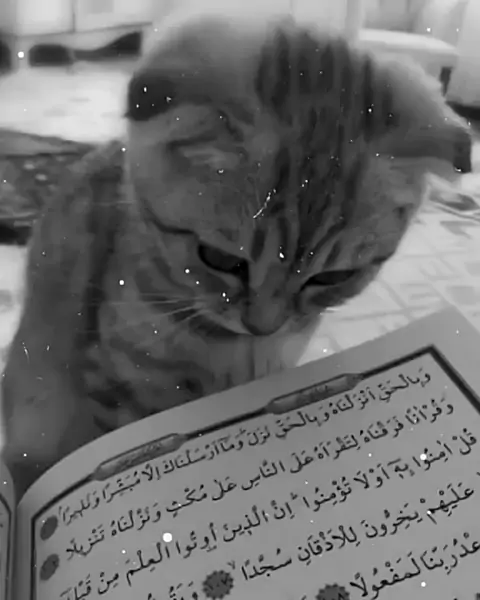 وَبِالْحَقِّ أَنْزَلْنَاهُ وَبِالْحَقِّ نَزَلَ وَمَا أَرْسَلْنَاكَ إِلَّا مُبَشِّرًا وَنَذِيرًا
وَقُرْآنًا فَرَقْنَاهُ لِتَقْرَأَهُ عَلَى النَّاسِ عَلَى مُكْثٍ وَنَزَّلْنَاهُ تَنْزِيلًا
قُلْ آمِنُوا بِهِ أَوْ لَا تُؤْمِنُوا إِنَّ الَّذِينَ أُوتُوا الْعِلْمَ مِنْ قَبْلِهِ
عَلَيْهِمْ يَخِرُّونَ لِلْأَذْقَانِ سُجَّدًا وَيَقُو
وَعْدُ رَبِّنَا لَمَفْعُولًا